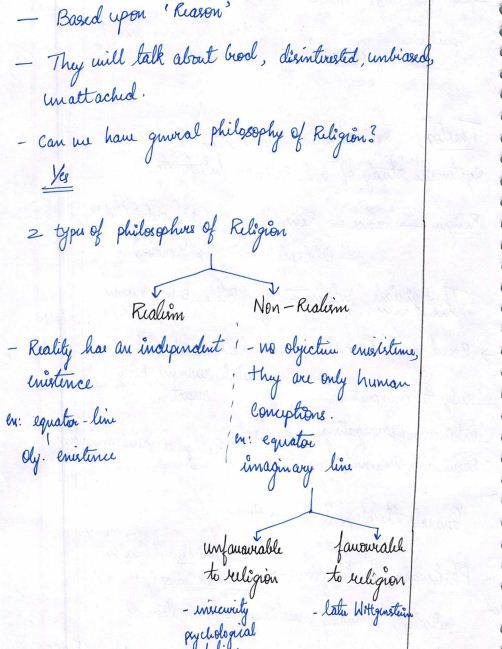 — Based upon 'Reason'
— They will talk about God, disinterested, unbiased,
unattached.
- Can we have general philosophy of Religion?
Yes
2 types of philosophers of Religion
Realism
Non-Realism
- Reality has an independent
existence
ex: equator-line
obj. existence
- no objective existence,
they are only human
conceptions.
ex: equator
imaginary line
unfavourable
to religion
- insecurity
psychological
favourable
to religion
- late Wittgenstein